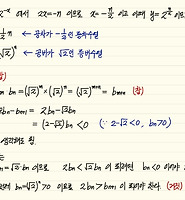 2^{-x} 에서 2x=-n 이므로 x=-\frac{n}{2} 이고 이때 y=2^{\frac{n}{2}} 이므로
\frac{1}{2}n ← 공차가 -\frac{1}{2}인 등차수열
(\sqrt{2})^n ← 공비가 \sqrt{2}인 등비수열
(참)
bm·bn=(\sqrt{2})^m×(\sqrt{2})^n=(\sqrt{2})^{m+n}=bm+n (참)
2bn-bn+1=2bn-\sqrt{2}bn
=(2-\sqrt{2})bn<0 (∵ 2-\sqrt{2}<0, bn>0)
생각해도 됨.
=\sqrt{2}·bn 이므로 2bn<\sqrt{2}bn 이 되려면 bn<0 이어야
bn=(\sqrt{2})^n>0 이므로 2bn>bn+1 이 되어야 한다. (거짓)